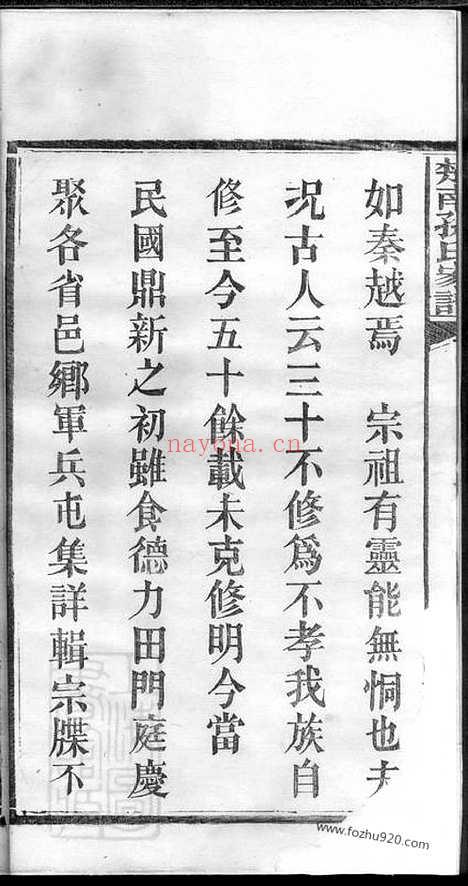 楚南孫氏家譜
如秦越焉　宗祖有靈能無恫也夫
况古人云三十不修爲不孝我族自
修至今五十餘載未克修明今當
民國鼎新之初雖食德力田門庭慶
聚各省邑鄉軍兵屯集詳輯宗牒不
nayona.cn
www.fozhu920.com